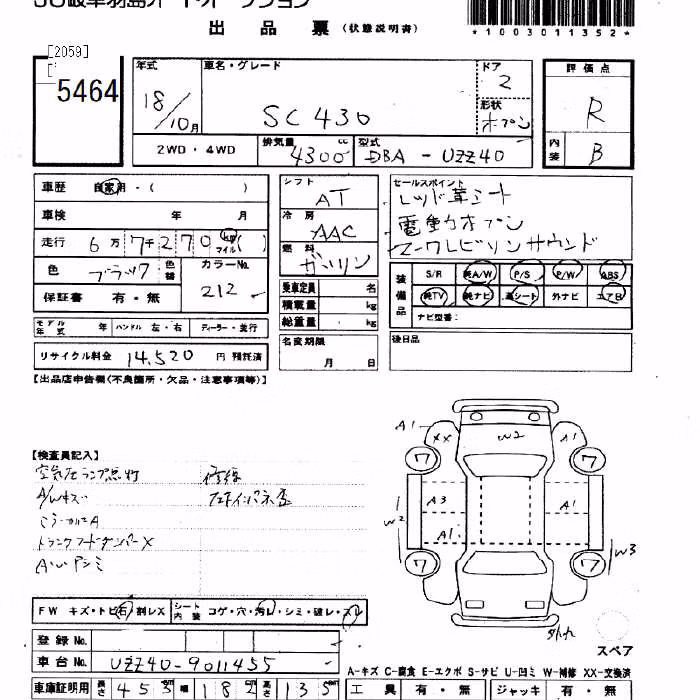 JU岐阜羽島オートオークション
出品票 (状態説明書)
*1003011352*
[2059]
5464
年式 車名・グレード ドア 評価点
18/10月 SC430 2 R
形状 オープン
2WD・4WD 排気量 4300cc 型式 DBA-UZZ40 内装 B
車歴 自家用・( )
シフト AT
セールスポイント
レッド革シート
電動オープン
マークレビリンサウンド
車検 年 月
冷房 AAC
走行 6万7千270km マイル ( )
燃料 ガソリン
色 ブラック 色替 カラーNo. 212
装備品 S/R 純A/W P/S P/W ABS
純TV 純ナビ 革シート 外ナビ エアB
ナビ型番:
保証書 有・無
乗車定員 名
積載量 kg
総重量 kg
モデル年式 年 ハンドル 左・右 ディーラー・並行
リサイクル料金 14,520 円 預託済
名変期限 月 日
後日品
【出品店申告欄(不良箇所・欠品・注意事項等)】
【検査員記入】
空気圧ランプ点灯 修復
A/Wキズ
トランクフードダンパーX
A1 XX W2 A1
ワ ワ
A3 A1
W2
A1
W3
ワ ワ
FW キズ・トビ石・割レX シート内装 コゲ・穴・汚レ・シミ・破レ・スレ
登録No.
スペア
車台No. UZZ40-9011455
A-キズ C-腐食 E-エクボ S-サビ U-凹ミ W-補修 XX-交換済
車庫証明用 長さ 453 幅 182 高さ 135
工具 有・無 ジャッキ 有・無